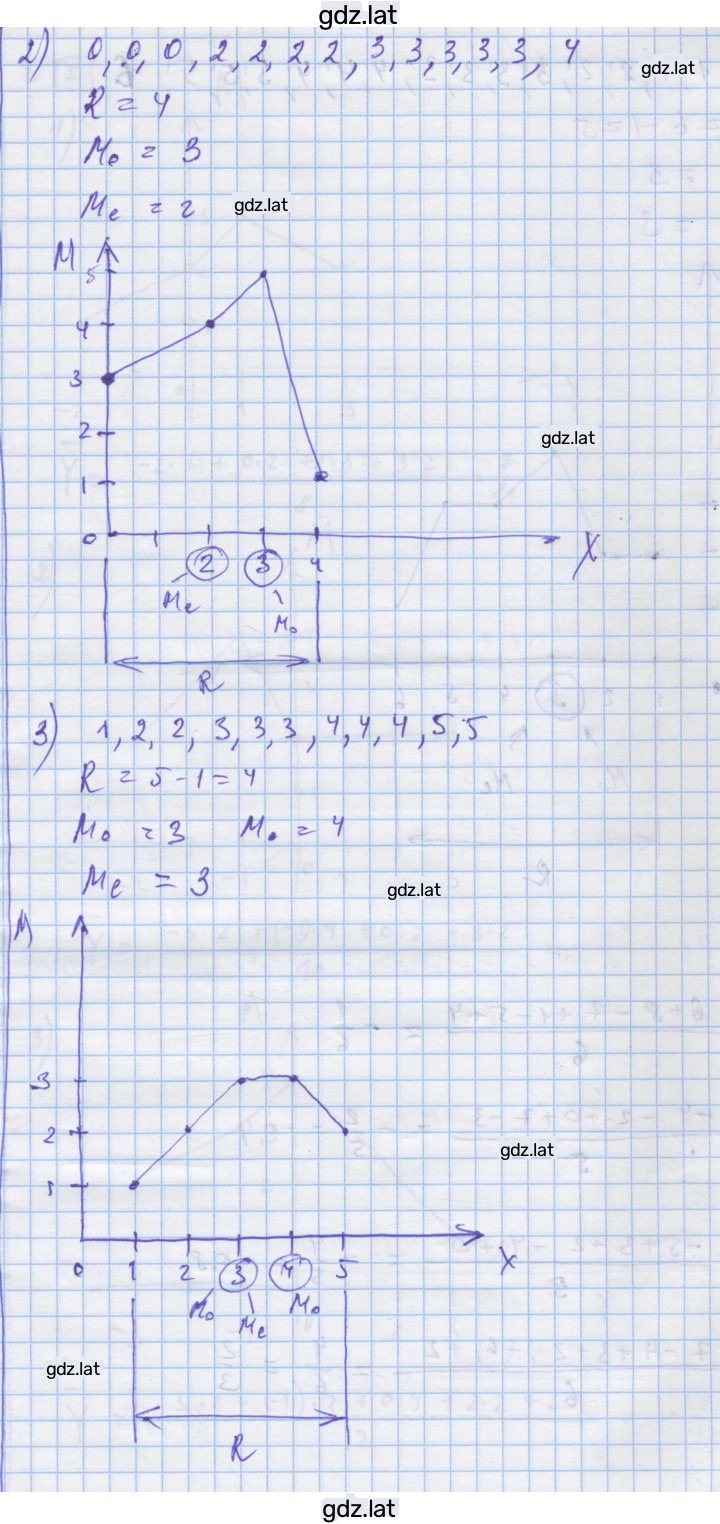 gdz.lat
2) 0, 0, 0, 2, 2, 2, 2, 3, 3, 3, 3, 3, 4
gdz.lat
R = 4
Mo = 3
Me = 2
gdz.lat
M
5
4
3
2
gdz.lat
1
0
2 3 4
X
Me
Mo
R
3) 1, 2, 2, 3, 3, 3, 4, 4, 4, 5, 5
R = 5 - 1 = 4
Mo = 3 Mo = 4
Me = 3
gdz.lat
M
3
2
gdz.lat
1
0 1 2 3 4 5
X
Mo Me Mo
gdz.lat
R
gdz.lat